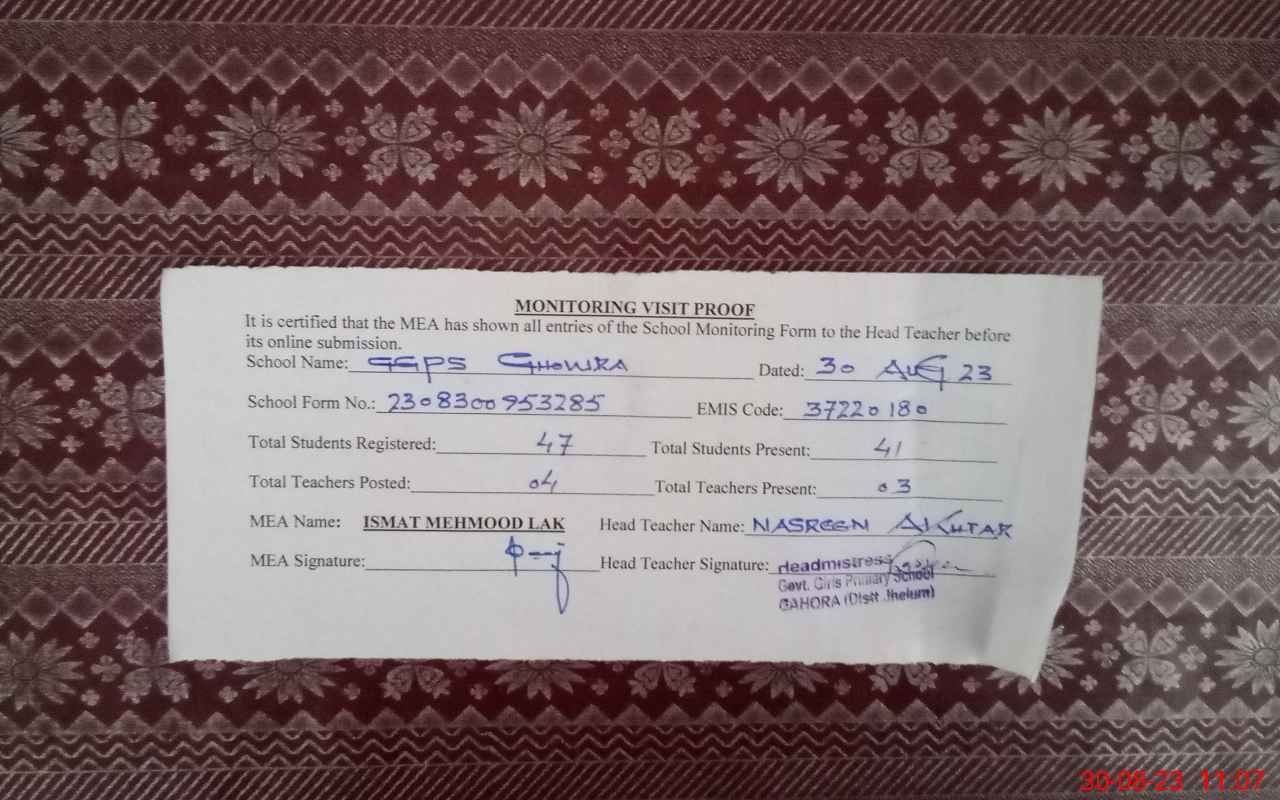 MONITORING VISIT PROOF
It is certified that the MEA has shown all entries of the School Monitoring Form to the Head Teacher before
its online submission.
School Name: GGPS GHOWRA Dated: 30 AUG 23
School Form No.: 2308300953285 EMIS Code: 37220180
Total Students Registered: 47 Total Students Present: 41
Total Teachers Posted: 04 Total Teachers Present: 03
MEA Name: ISMAT MEHMOOD LAK Head Teacher Name: NASREEN AKHTAR
MEA Signature: Head Teacher Signature:
Headmistress
Govt. Girls Primary School
GAHORA (Distt Jhelum)
30-08-23 11:07